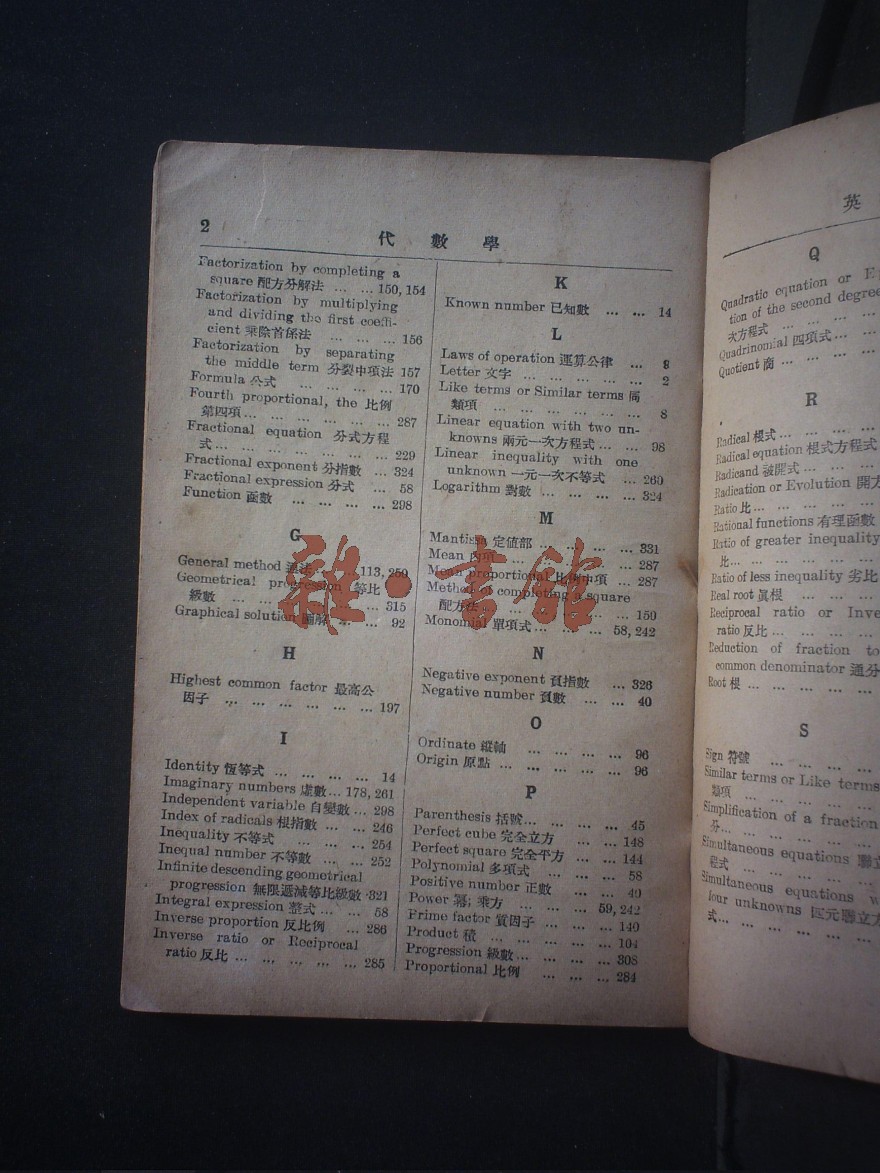 2
代數學
Factorization by completing a
square 配方分解法 ... ... 150, 154
Factorization by multiplying
and dividing the first coeffi-
cient 乘除首係法 ... ... ... 156
Factorization by separating
the middle term 分裂中項法 157
Formula 公式 ... ... ... ... 170
Fourth proportional, the 比例
第四項... ... ... ... ... ... 287
Fractional equation 分式方程
式... ... ... ... ... ... ... 229
Fractional exponent 分指數 ... 324
Fractional expression 分式 ... 58
Function 函數 ... ... ... ... 298
G
General method 通法 ... ... 113, 250
Geometrical progression 等比
級數 ... ... ... ... ... 315
Graphical solution 圖解 ... ... 92
H
Highest common factor 最高公
因子 ... ... ... ... ... ... 197
I
Identity 恆等式 ... ... ... ... 14
Imaginary numbers 虛數... 178, 261
Independent variable 自變數... 298
Index of radicals 根指數 ... ... 246
Inequality 不等式 ... ... ... 254
Inequal number 不等數 ... ... 252
Infinite descending geometrical
progression 無限遞減等比級數 321
Integral expression 整式 ... ... 58
Inverse proportion 反比例 ... 286
Inverse ratio or Reciprocal
ratio 反比 ... ... ... ... ... 285
K
Known number 已知數 ... ... 14
L
Laws of operation 運算公律 ... 9
Letter 文字 ... ... ... ... ... 2
Like terms or Similar terms 同
類項 ... ... ... ... ... ... 8
Linear equation with two un-
knowns 兩元一次方程式... ... 98
Linear inequality with one
unknown 一元一次不等式 ... 260
Logarithm 對數 ... ... ... ... 324
M
Mantissa 定值部 ... ... ... ... 331
Mean 內項 ... ... ... ... ... 287
Mean proportional 比例中項 ... 287
Method of completing a square
配方法... ... ... ... ... ... 150
Monomial 單項式... ... ... 58, 242
N
Negative exponent 負指數 ... 326
Negative number 負數 ... ... 40
O
Ordinate 縱軸 ... ... ... ... 96
Origin 原點 ... ... ... ... ... 96
P
Parenthesis 括號... ... ... ... 45
Perfect cube 完全立方 ... ... 148
Perfect square 完全平方 ... ... 144
Polynomial 多項式 ... ... ... 58
Positive number 正數 ... ... 40
Power 冪; 乘方 ... ... ... 59, 242
Prime factor 質因子 ... ... ... 140
Product 積 ... ... ... ... ... 104
Progression 級數... ... ... ... 308
Proportional 比例 ... ... ... 284
英
Q
Quadratic equation or
tion of the second degree
次方程式 ... ... ... ...
Quadrinomial 四項式... ...
Quotient 商 ... ... ... ...
R
Radical 根式... ... ... ...
Radical equation 根式方程式
Radicand 被開式... ... ...
Radication or Evolution 開方
Ratio 比... ... ... ... ...
Rational functions 有理函數
Ratio of greater inequality
比... ... ... ... ... ...
Ratio of less inequality 劣比
Real root 眞根 ... ... ...
Reciprocal ratio or Inve
ratio 反比 ... ... ... ...
Reduction of fraction to
common denominator 通分
Root 根 ... ... ... ... ...
S
Sign 符號 ... ... ... ...
Similar terms or Like terms
類項 ... ... ... ... ...
Simplification of a fraction
分... ... ... ... ... ...
Simultaneous equations 聯立
程式 ... ... ... ... ...
Simultaneous equations w
four unknowns 四元聯立方
式... ... ... ... ... ...
雜·書館